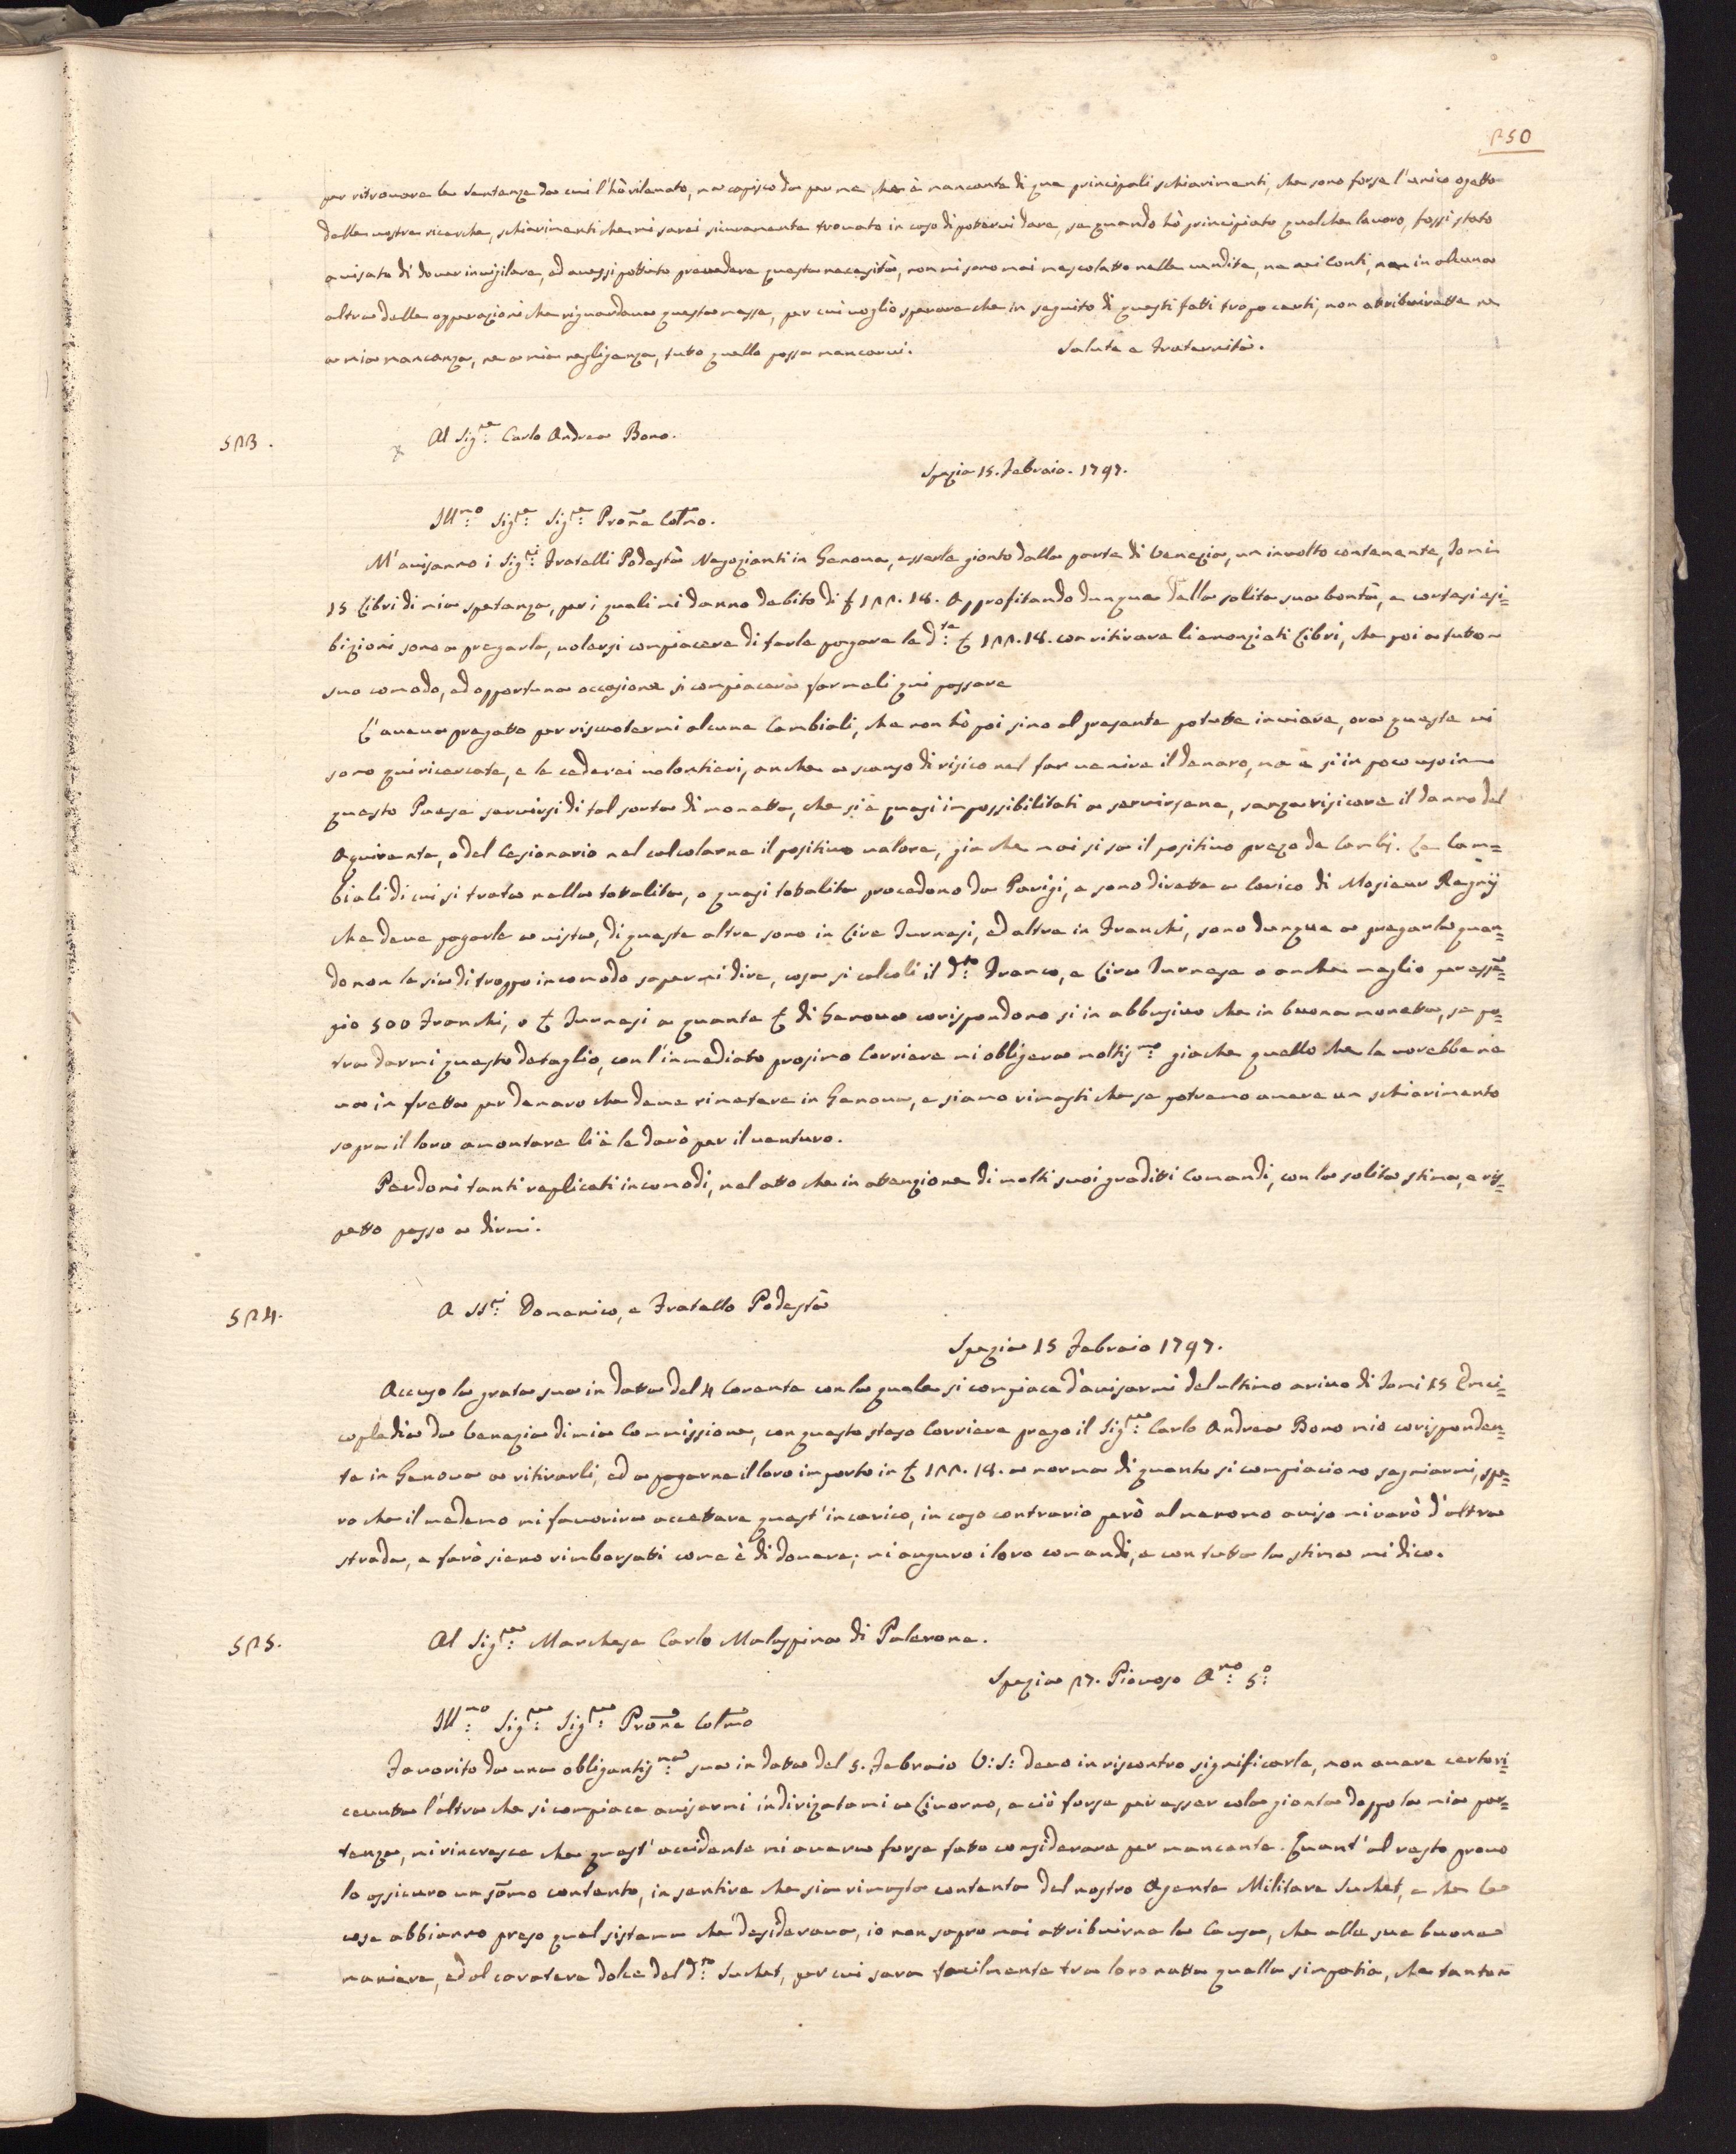 250
per ritrovare la Sentenza da cui l'hò rilevato, ma capisco da per me che è mancante di que principali schiarimenti, che sono forse l'unico ogetto
delle vostre ricerche, schiarimenti che mi sarei sicuramente trovato in caso di potervi dare, se quando hò principiato qualche lavoro, fossi stato
avisato di dover invigilare, ed avessi pottuto prevedere questa necesità, non mi sono mai mescolatto nelle vendite, ne nei Conti, ne in alcuna
altra delle opperazioni che riguardava questa massa, per cui voglio sperare che in seguito di questi fatti tropo certi, non attribuirette ne
a mia mancanza, ne a mia negligenza, tutto quello possa mancarvi. Salute e Fraternità.
523.
Al Sig.re Carlo Andrea Bono.
Spezia 15. Febraio. 1797.
Ill:mo Sig:re Sig:re Prone Colmo.
M'avisanno i Sig:ri Fratelli Podestà Negozianti in Genova, esserle gionto dalla parte di Venezia, un involto contenente, Tomi
15 Libri di mia spetanza, per i quali mi danno debito di £ 122.18. Approfitando dunque della solita sua bontà, e cortesi esi=
bizioni sono a pregarla, volersi compiacere di farle pagare le d:te £ 122.18. con ritirare li anonziati Libri, che poi a tutto
suo comodo, ed opportuna occasione si compiacerà farmeli qui passare
L'aveva pregatto per riscuotermi alcune Cambiali, che non hò poi sino al presente potutte inviare, ora queste mi
sono qui ricercate, e le cederei volontieri, anche a scanso di risico nel far venire il denaro, ma è si in poco uso in
questo Paese servirsi di tal sorta di monetta, che si è quasi impossibilitati a servirsene, senza risicare il danno del
Aquirente, o del Cesionario nel calcolarne il positivo valore, gia che mai si sa il positivo prezo de Cambj. Le Cam=
biali di cui si trata nella totalita, o quasi totalita procedono da Parigi, e sono dirette a Carico di Mosieur Regnij
che deve pagarle a vista, di queste altre sono in Lire Turnesi, ed altre in Franchi, sono dunque a pregarla quan=
do non le sia di troppo incomodo sapermi dire, cosa si calcoli il d:to Franco, e Lira Turnese o anche meglio per essem=
pio 500 Franchi, o £ Turnesi a quante £ di Genova corispondono si in abbusivo che in buona moneta, se po=
tra darmi questo detaglio, con l'inmediato prosimo Corriere mi obligera moltis:mo giache quello che la vorebbe ne
va in fretta per denaro che deve rimetere in Genova, e siamo rimasti che se potremo avere un schiarimento
sopra il loro amontare li è le darò per il venturo.
Perdoni tanti replicati incomodi, nel atto che in attenzione di molti suoi graditti Comandi, con la solita stima, e ris=
petto passo a dirmi.
524.
A SS:ri Domenico, e Fratello Podestà
Spezia 15 Febraio 1797.
Accuso la grata sua in datta del 4 Corente con la quale si compiace d'avisarmi del ultimo arivo di Tomi 15 Enci=
copledia da Venezia di mia Commissione, con questo steso Corriere prego il Sig:re Carlo Andrea Bono mio corisponden=
te in Genova a ritirarli, ed a pagarne il loro importo in £ 122.18. a norma di quanto si compiaciono segniarmi, spe=
ro che il medemo mi favorira accettare quest'incarico, in caso contrario però al menomo aviso mi varò d'altra
strada, e farò sieno rimborsati come è di dovere; mi auguro i loro comandi, e con tutta la stima mi dico.
525.
Al Sig:re Marchese Carlo Malaspina di Palerone.
Spezia 27. Piovoso A:no 5:o
Ill:mo Sig:re Sig:re Prone Colmo
Favorito da una obligantis:ma sua in datta del 5. Febraio V:S: devo in riscontro significarle, non avere certo ri=
cevutta l'altra che si compiace avisarmi indirizatami a Livorno, e ciò forse per esser cola gionta doppo la mia par=
tenza, mi rincresce che quest'accidente mi avera forse fatto considerare per mancante. Quant'al resto provo
lo assicuro un sõmo contento, in sentire che sia rimasto contento del nostro Agente Militare Suchet, e che le
cose abbianno preso quel sistema che desiderava, io non sapro mai attribuirne la Causa, che alle sue buone
maniere, ed al caratere dolce del d:to Suchet, per cui sara facilmente tra loro natta quella simpatia, che tanto